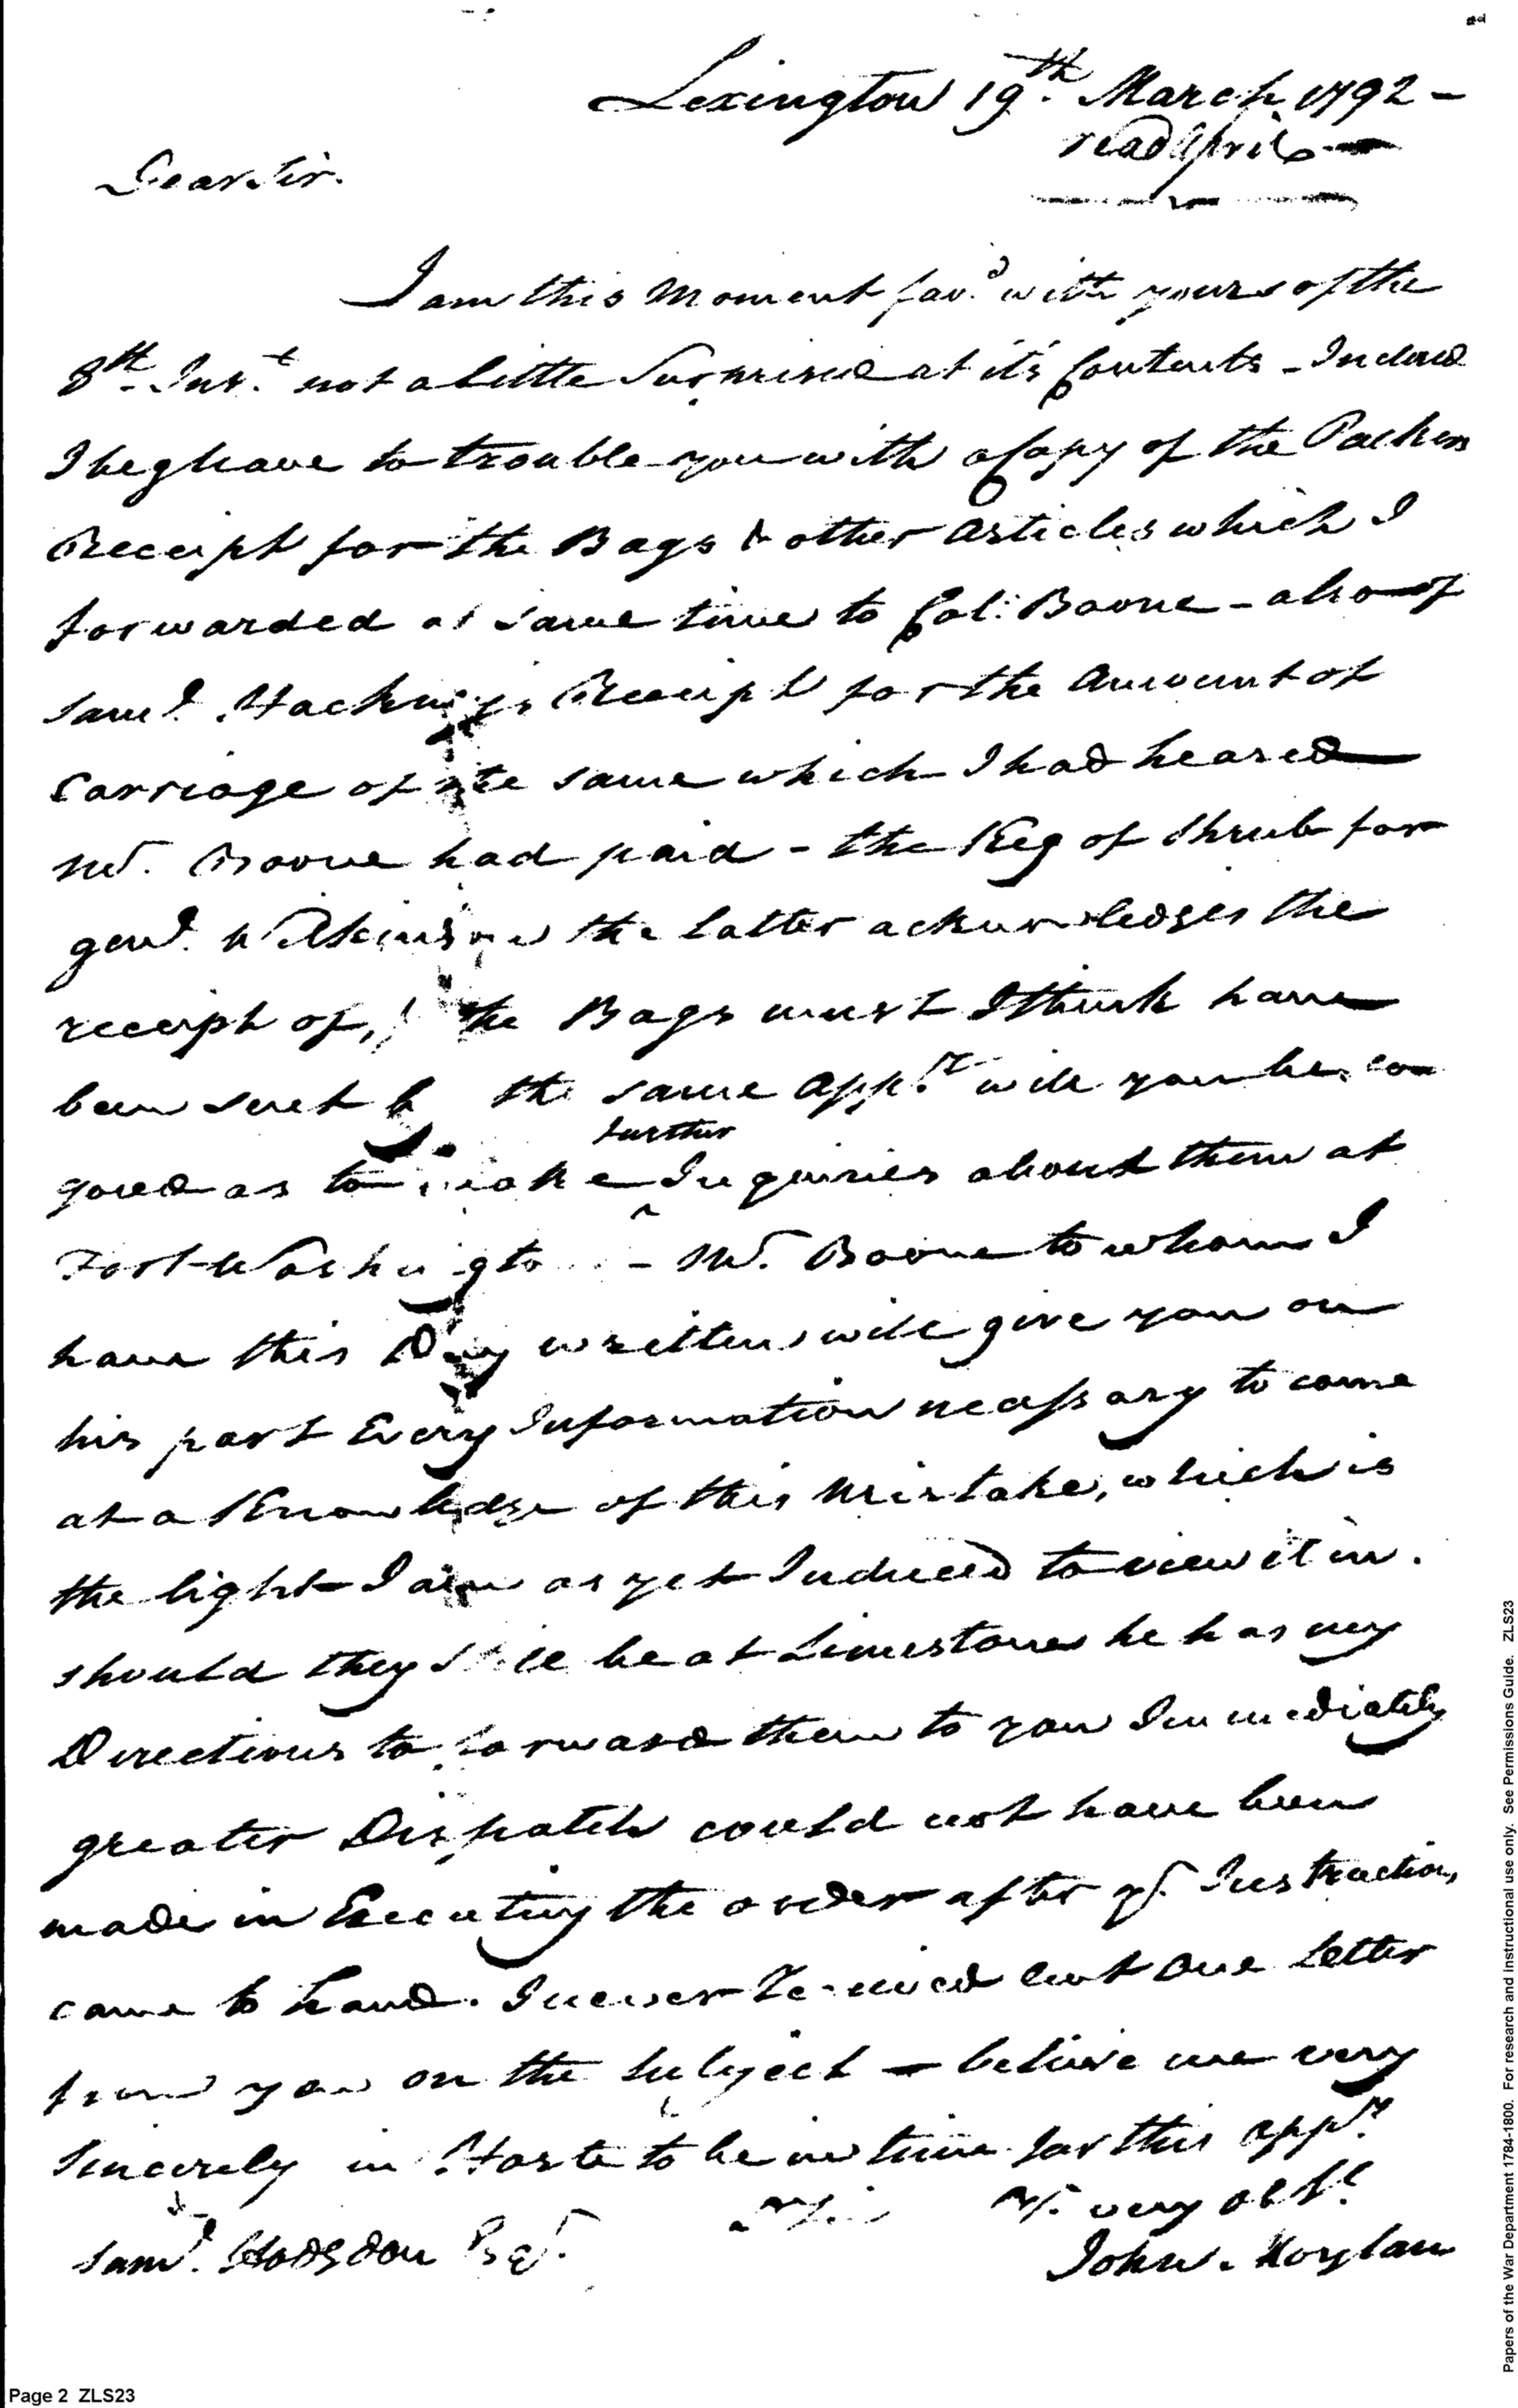 Lexington 19th. March 1792 -
read April
Dear Sir.
I am this Moment fav.d with yours of the
8th. Inst. not a little Surprised at it's Contents - Indeed
I beg leave to trouble you with a Copy of the Packers
Receipt for the Bags & other articles which I
forwarded at same time to Col: Boone - also of
Saml. Receipt for the Amount of
Carriage of the same which I had heared
Mr. Boone had paid - the Keg of Shrub for
genl. Wilkinson the latter acknowledges the
receipt of, the Bags must I think have
been sent by the same Oppy. will you be so
further
good as to make Inquiries about them at
Fort Washington - Mr. Boone to whom I
have this Day written will give you on
his part Every Information necessary to come
at a Knowledge of this Mistake, which is
the light I am as yet Induced to view it in.
should they still be at Limestone he has my
Directions to forward them to you Immediately
greater Dispatch could not have been
made in Executing the order after yr. Instructions
came to hand. I never Received but One Letter
from you on the Subject - believe me very
Sincerely in Haste to be in time for this Oppy.
Yr. very obt.
Saml. Hodgdon Esqr.
John Moylan
Page 2 ZLS23
Papers of the War Department 1784-1800. For research and instructional use only. See Permissions Guide. ZLS23